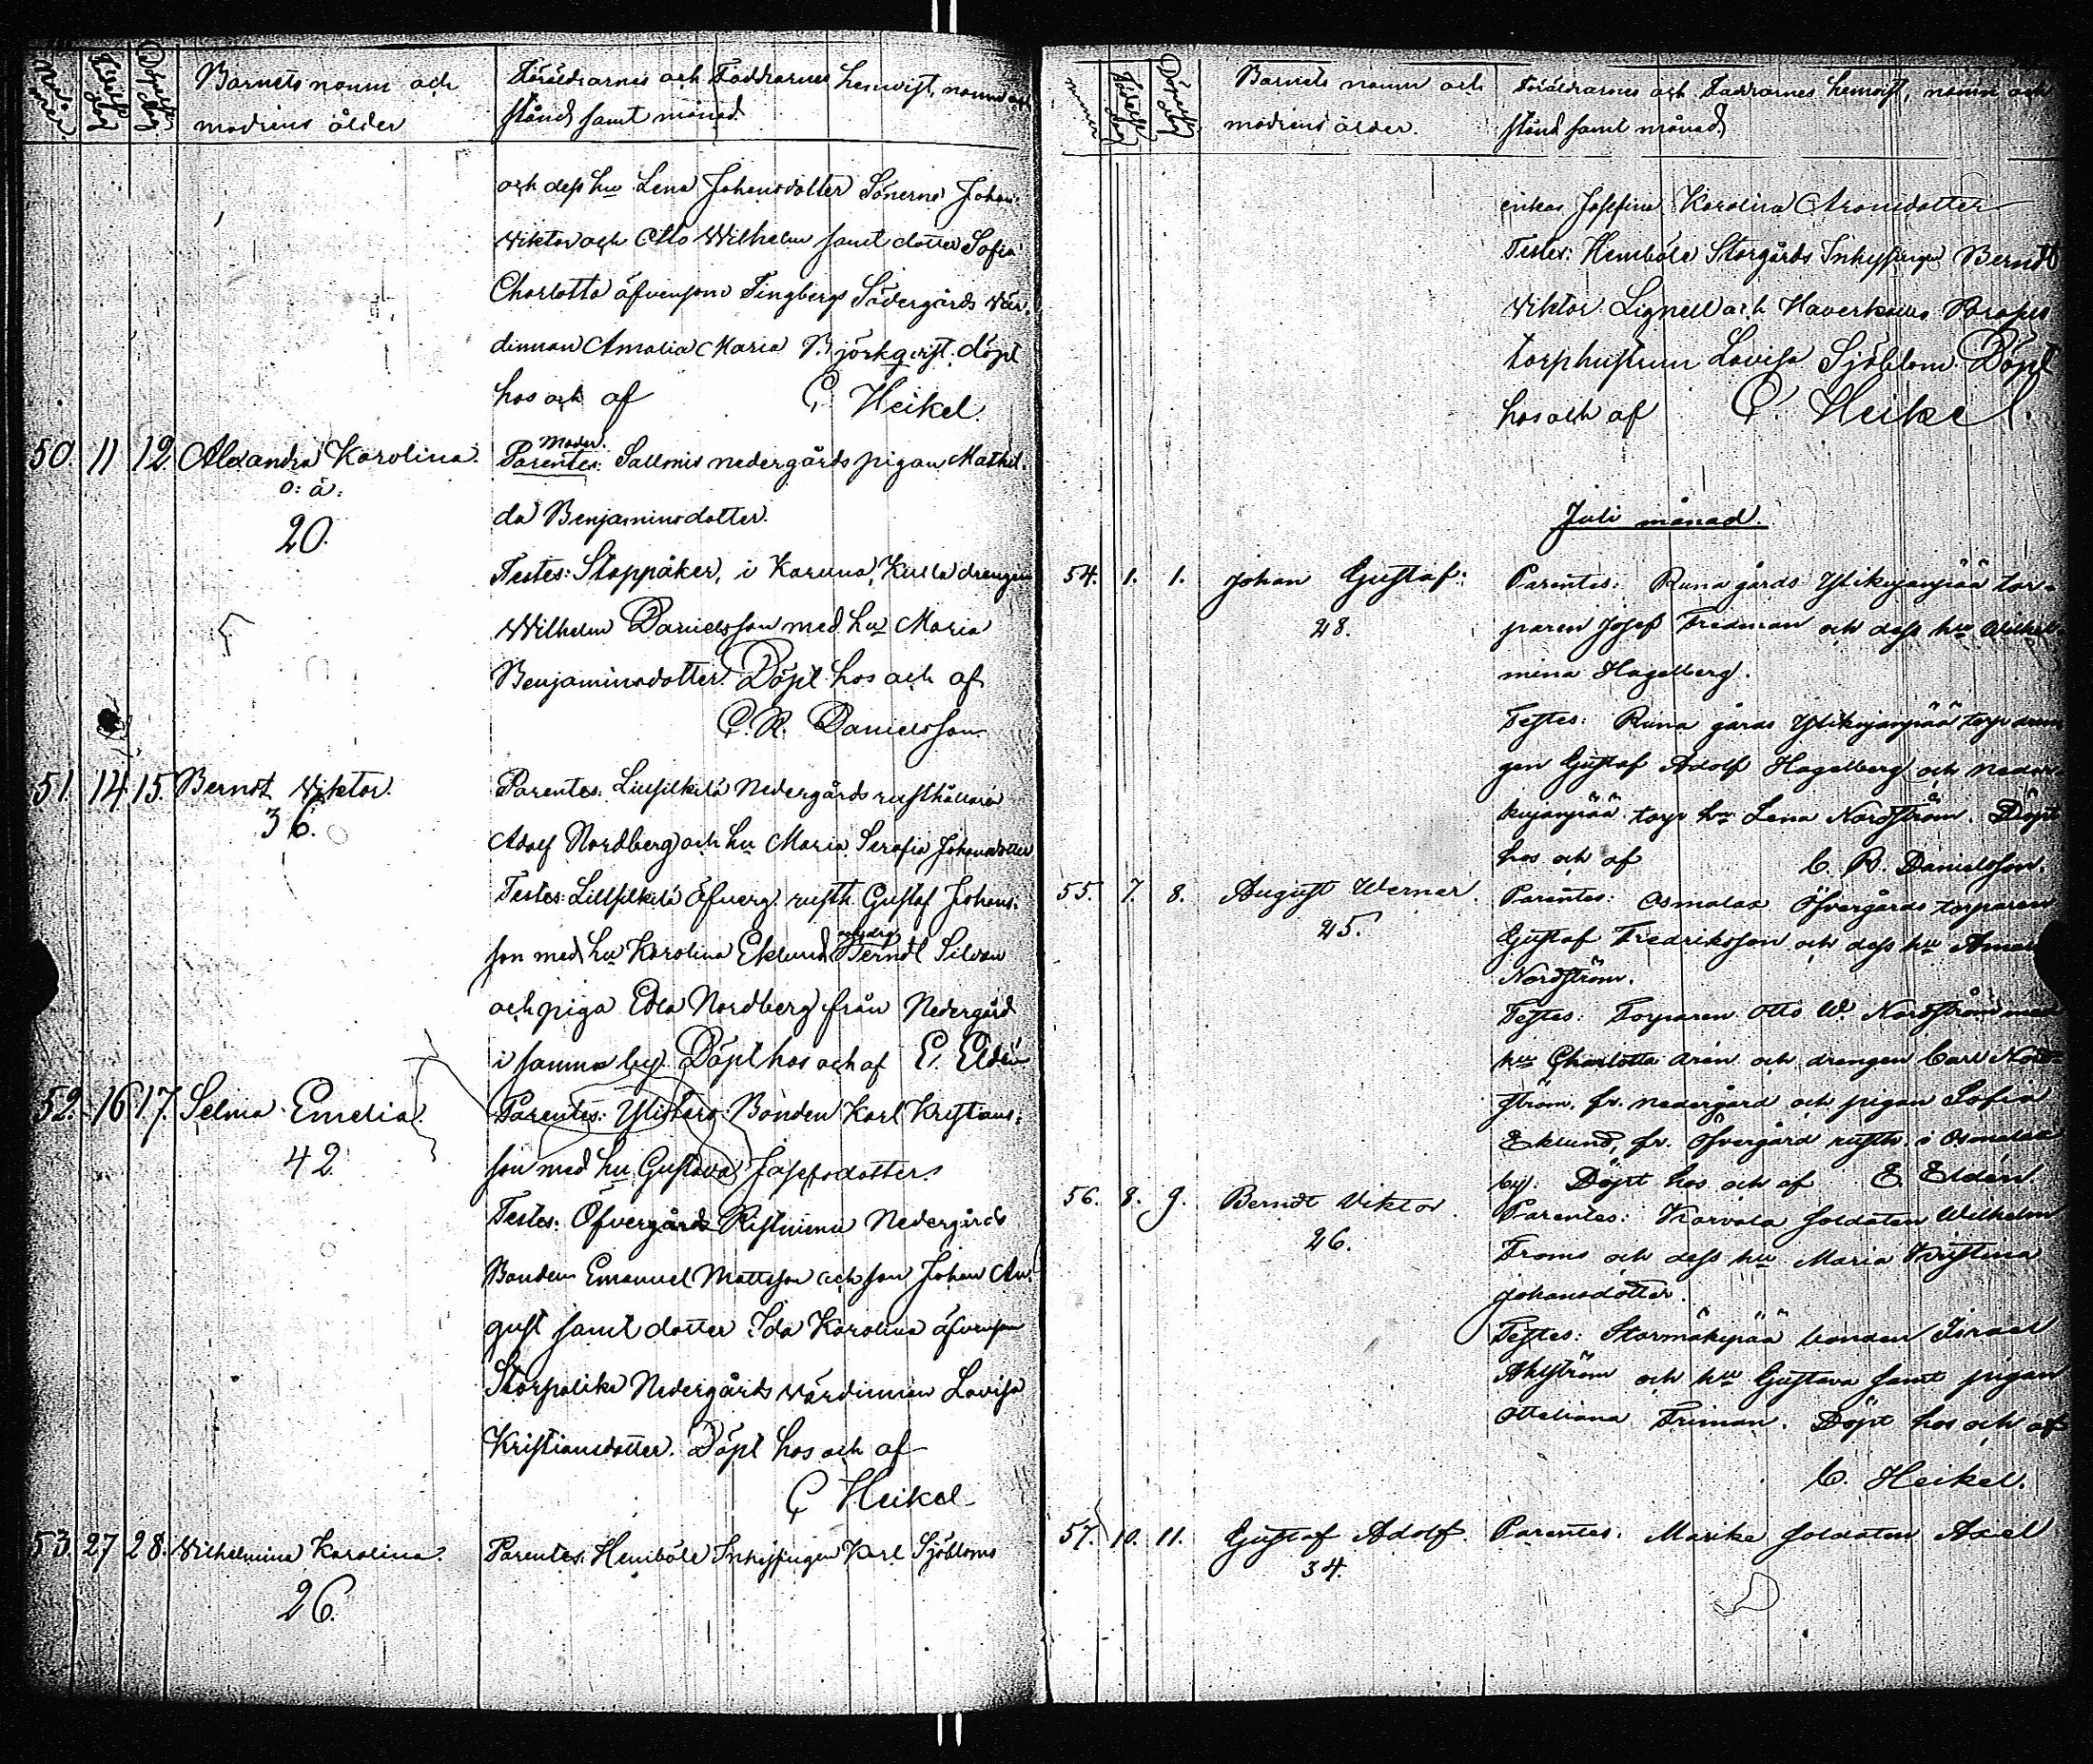 Nummer
Födelse dag
Döpelse dag
Barnets namn och
modrens ålder
Föräldrarnes och Faddrarnes hemvist, namn och
stånd samt månad.
och dess hu Lena Johansdotter Sönerna Johan
Wiktor och Otto Wilhelm samt dotter Sofia
Charlotta äfvensom Tingbergs Södergårds vär-
dinnan Amalia Maria Björkqvist. döpt
hos och af C. Heikel.
50. 11 12 Alexandra Karolina.
o: ä:
20.
Moder.
Parentes: Sallmis nedergårds pigan Mathil-
da Benjaminsdotter.
Testes: Stoppåker, i Karuna, Kulla drengen
Wilhelm Danielsson med hu Maria
Benjaminsdotter. Döpt hos och af
C. R. Danielsson.
51. 14 15. Berndt Wiktor.
36.
Parentes: Lillsilkilä Nedergårds rusthållare
Adolf Nordberg och hu Maria Serafia Johansdotter
Testes: Lillsilkilä Öfverg. rusth. Gustaf Johans-
son med hu Karolina Eklund Berndt Silvan
och piga Edla Nordberg från Nedergård
i samma by. Döpt hos och af E. Eldén
52. 16 17. Selma Emelia.
42.
Parentes: Ylistaro Bonden Karl Kristians-
son med hu Gustava Josefsdotter.
Testes: Öfvergårds Ristniemi Nedergårds
Bonden Emanuel Mattsson och son Johan Au-
gust samt dotter Ida Karolina äfvensom
Storpalike Nedergårds värdinnan Lovisa
Kristiansdotter. Döpt hos och af
C Heikel
53. 27 28. Wilhelmina Karolina.
26.
Parentes: Hemböle Inhysingen Karl Sjöbloms
nummer
Födelse dag
Döpelse dag
Barnets namn och
modrens ålder.
Föräldrarnes och Faddrarnes hemvist, namn och
stånd samt månad.
enkas Josefina Karolina Aronsdotter
Testes: Hemböle Storgårds Inhysingen Berndt
Viktor Lignell och Haverkulla
torphustrun Lovisa Sjöblom. Döpt
hos och af C. Heikel.
Juli månad.
54. 1. 1. Johan Gustaf:
28.
Parentes: Runa gårds Ylikujanpää tor-
paren Josef Fredman och dess hu Wilhel-
mina Hagelberg.
Testes: Runa gårds Ylikujanpää torp dren-
gen Gustaf Adolf Hagelberg och Neder-
kujanpää torp hu Lena Nordström. Döpt
hos och af C. R. Danielsson.
55. 7. 8. August Werner.
25.
Parentes: Osmalax Öfvergårds torparen
Gustaf Fredriksson och dess hu
Nordström.
Testes: Torparen Otto W. Nordström med
hu Charlotta Arén och drengen Carl Nord-
ström, fr. nedergård och pigan Sofia
Eklund, fr. Öfvergård rusth. i Osmalax
by. Döpt hos och af E Eldén.
56. 8. 9. Berndt Viktor.
26.
Parentes: Karvala soldaten Wilhelm
Froms och dess hu Maria Kristina
Johansdotter.
Testes: Stormäkipää bonden Israel
Ahlström och hu Gustava samt pigan
Ottiliana Friman. Döpt hos och af
C. Heikel.
57. 10. 11. Gustaf Adolf.
34.
Parentes: Marike soldaten Axel